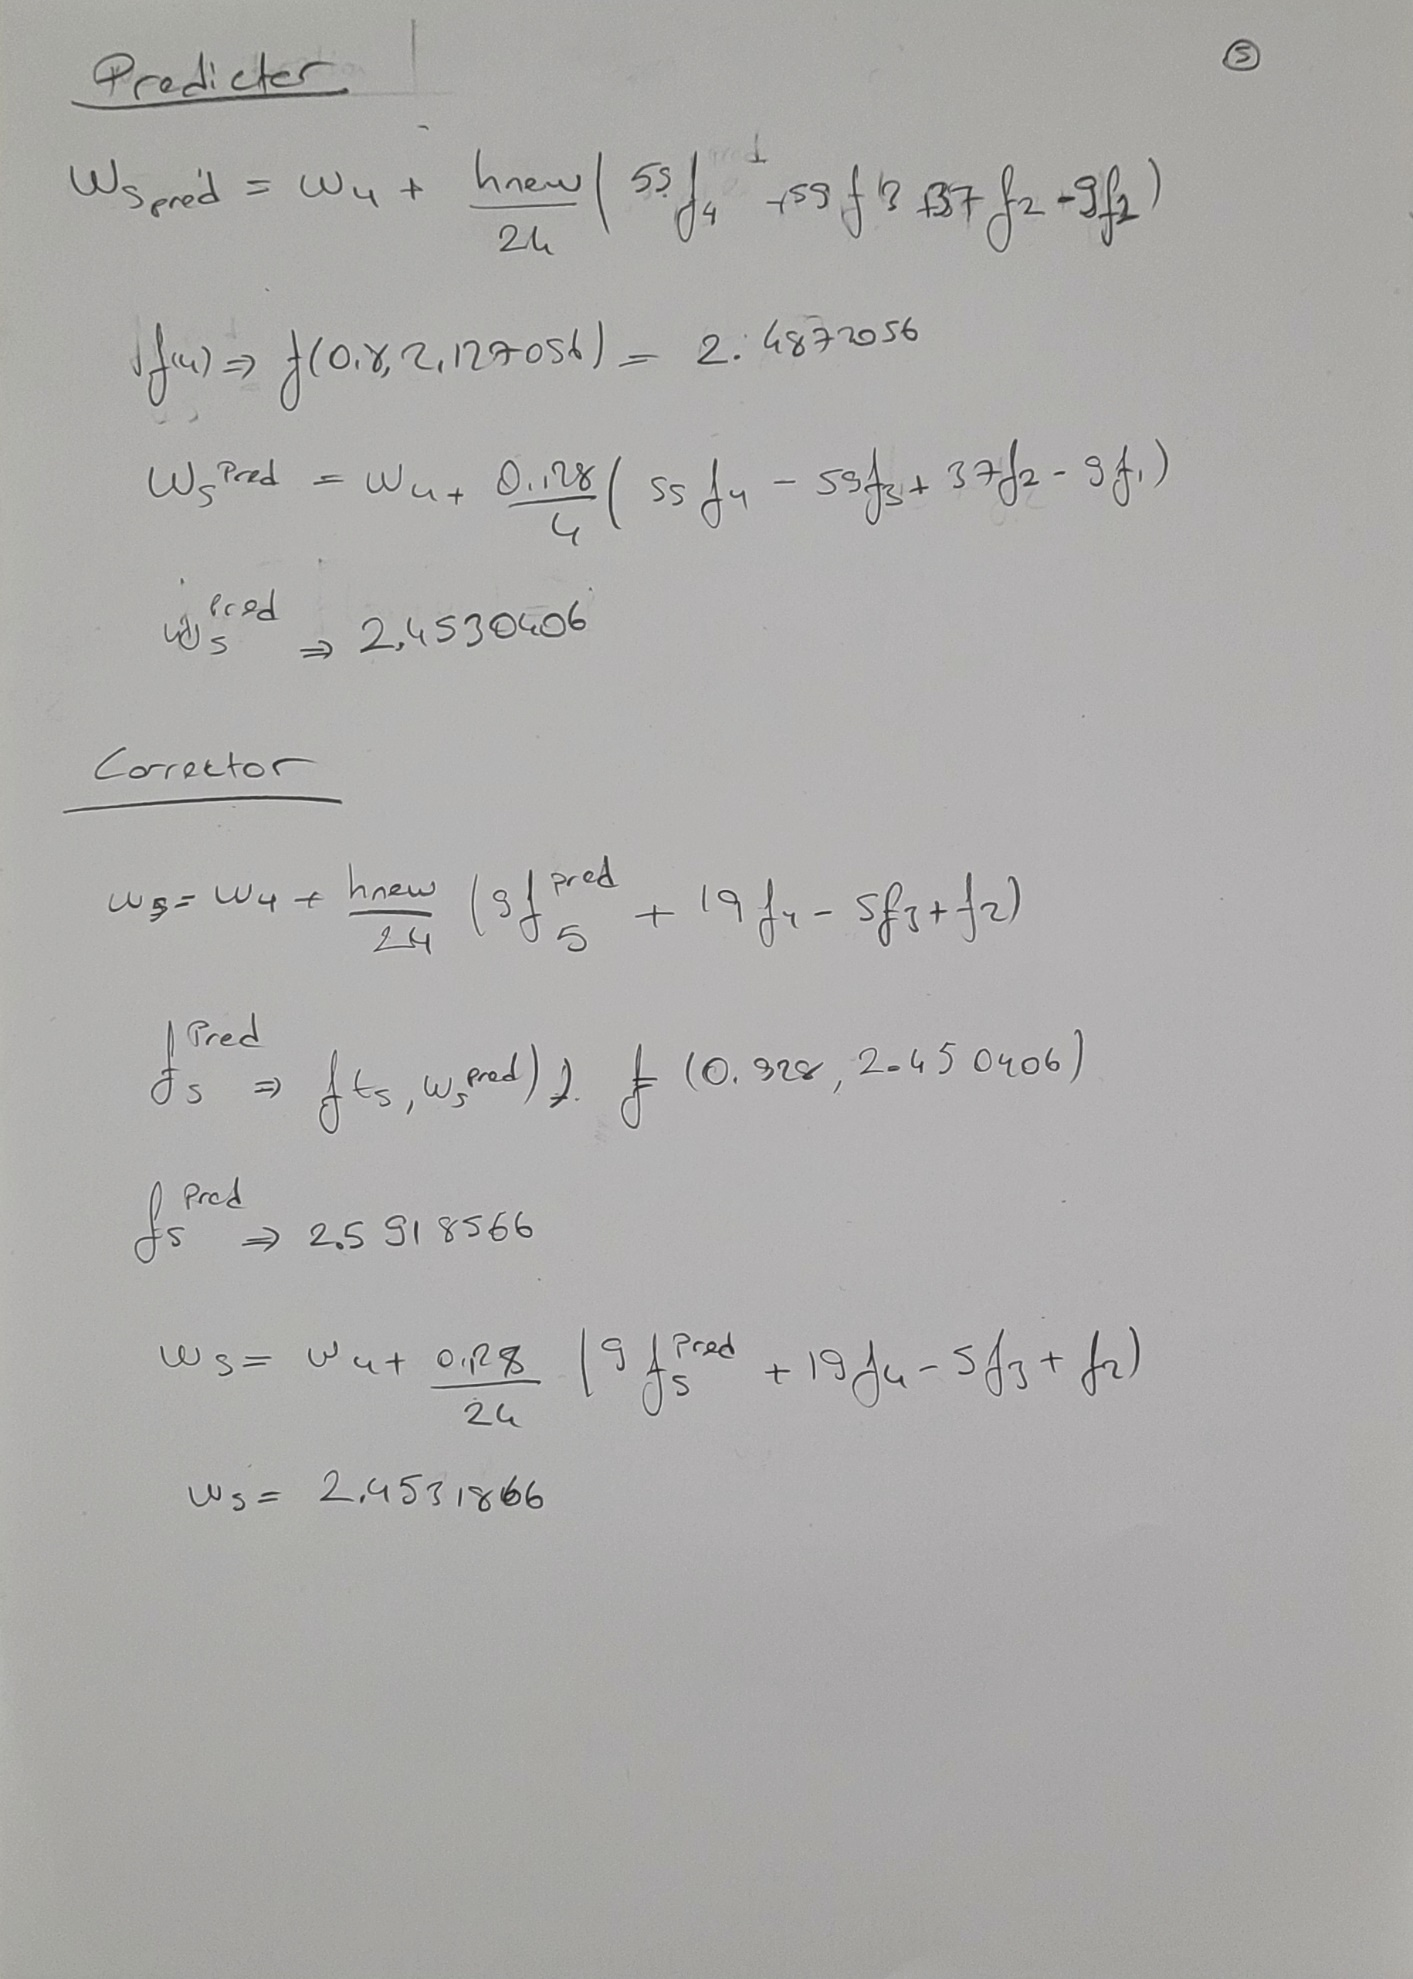 5
Predicter
W5 pred = W4 + hnew/24 ( 55 f4 + 59 f3 + 37 f2 - 9f1 )
f(4) ⇒ f(0.8, 2,127056) = 2.4872056
W5 Pred = W4 + 0.128/4 ( 55 f4 - 59f3 + 37f2 - 9f1 )
W5 Pred ⇒ 2,4530406
Corrector
W5 = W4 + hnew/24 (9f5 pred + 19 f4 - 5f3 + f2)
f5 Pred ⇒ f t5, W5 pred) f (0.928, 2.450406)
f5 Pred ⇒ 2.5918566
W5 = W4 + 0.128/24 (9 f5 Pred + 19f4 - 5f3 + f2)
W5 = 2.4531866